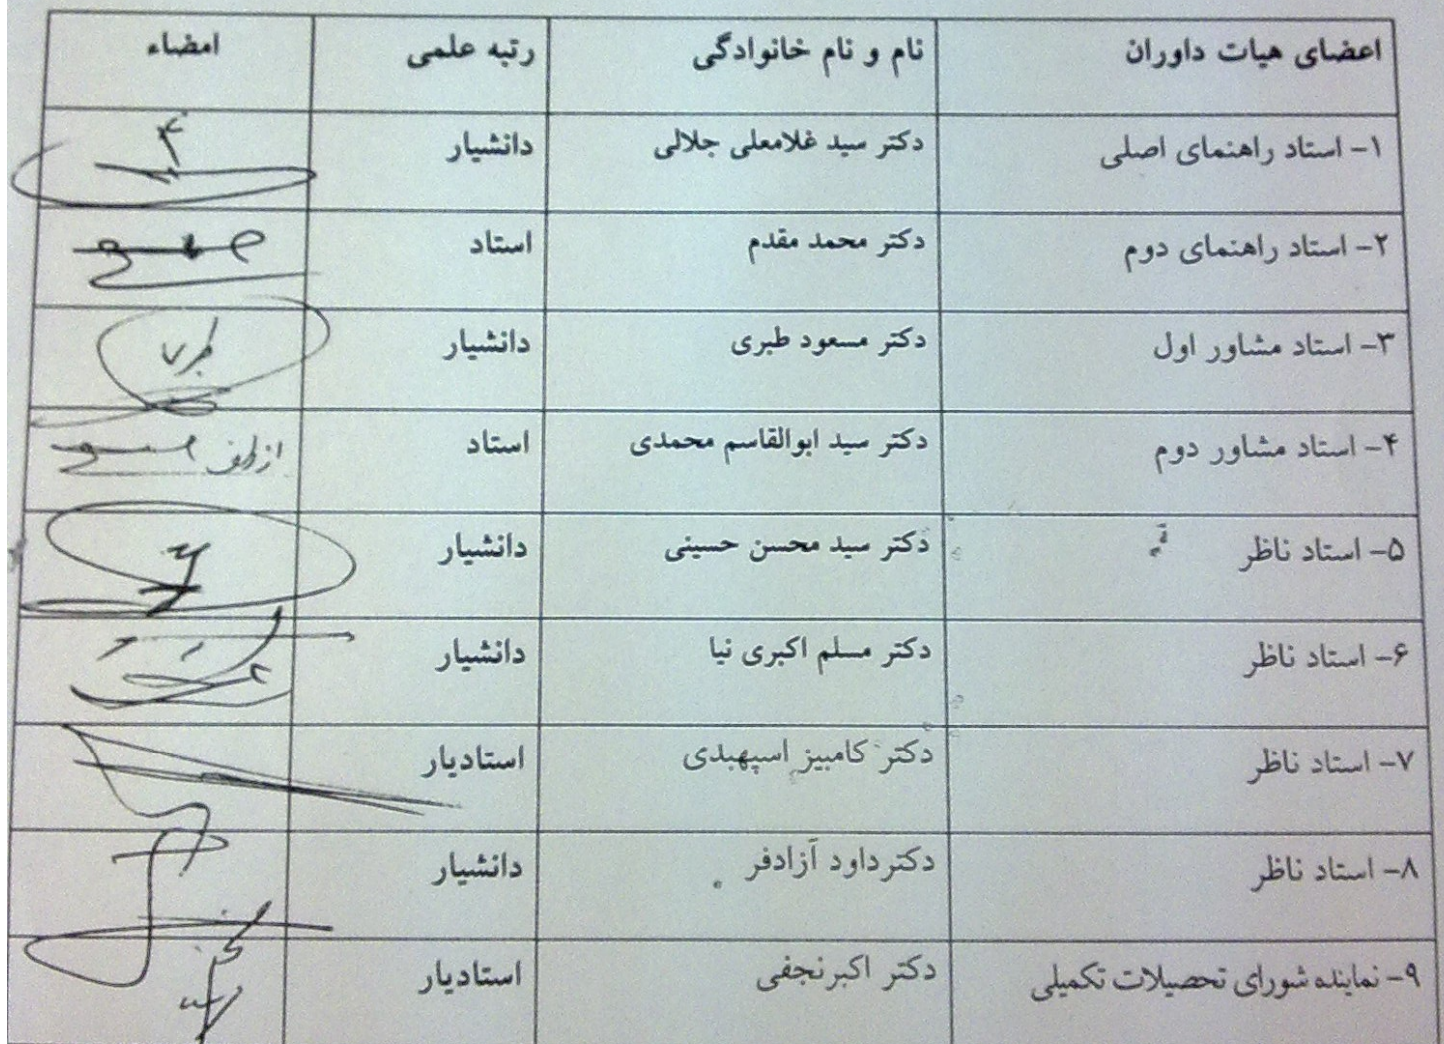 اعضای هیات داوران نام و نام خانوادگی رتبه علمی امضاء
۱- استاد راهنمای اصلی دکتر سید غلامعلی جلالی دانشیار
۲- استاد راهنمای دوم دکتر محمد مقدم استاد
۳- استاد مشاور اول دکتر مسعود طبری دانشیار
۴- استاد مشاور دوم دکتر سید ابوالقاسم محمدی استاد از طرف
۵- استاد ناظر دکتر سید محسن حسینی دانشیار
۶- استاد ناظر دکتر مسلم اکبری نیا دانشیار
۷- استاد ناظر دکتر کامبیز اسپهبدی استادیار
۸- استاد ناظر دکترداود آزادفر دانشیار
۹- نماینده شورای تحصیلات تکمیلی دکتر اکبرنجفی استادیار